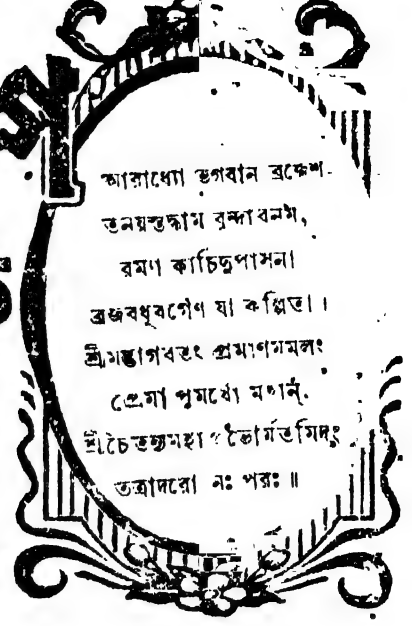 আরাধ্যো ভগবান ব্রজেশ-
তনয়স্তদ্ধাম বৃন্দাবনম,
রম্যা কাচিদুপাসনা
ব্রজবধূবর্গেণ যা কল্পিতা।
শ্রীমদ্ভাগবতং প্রমাণমমলং
প্রেমা পুমর্থো মহান্,
শ্রীচৈতন্যমহাপ্রভোর্মতমিদং
তত্রাদরো নঃ পরঃ॥